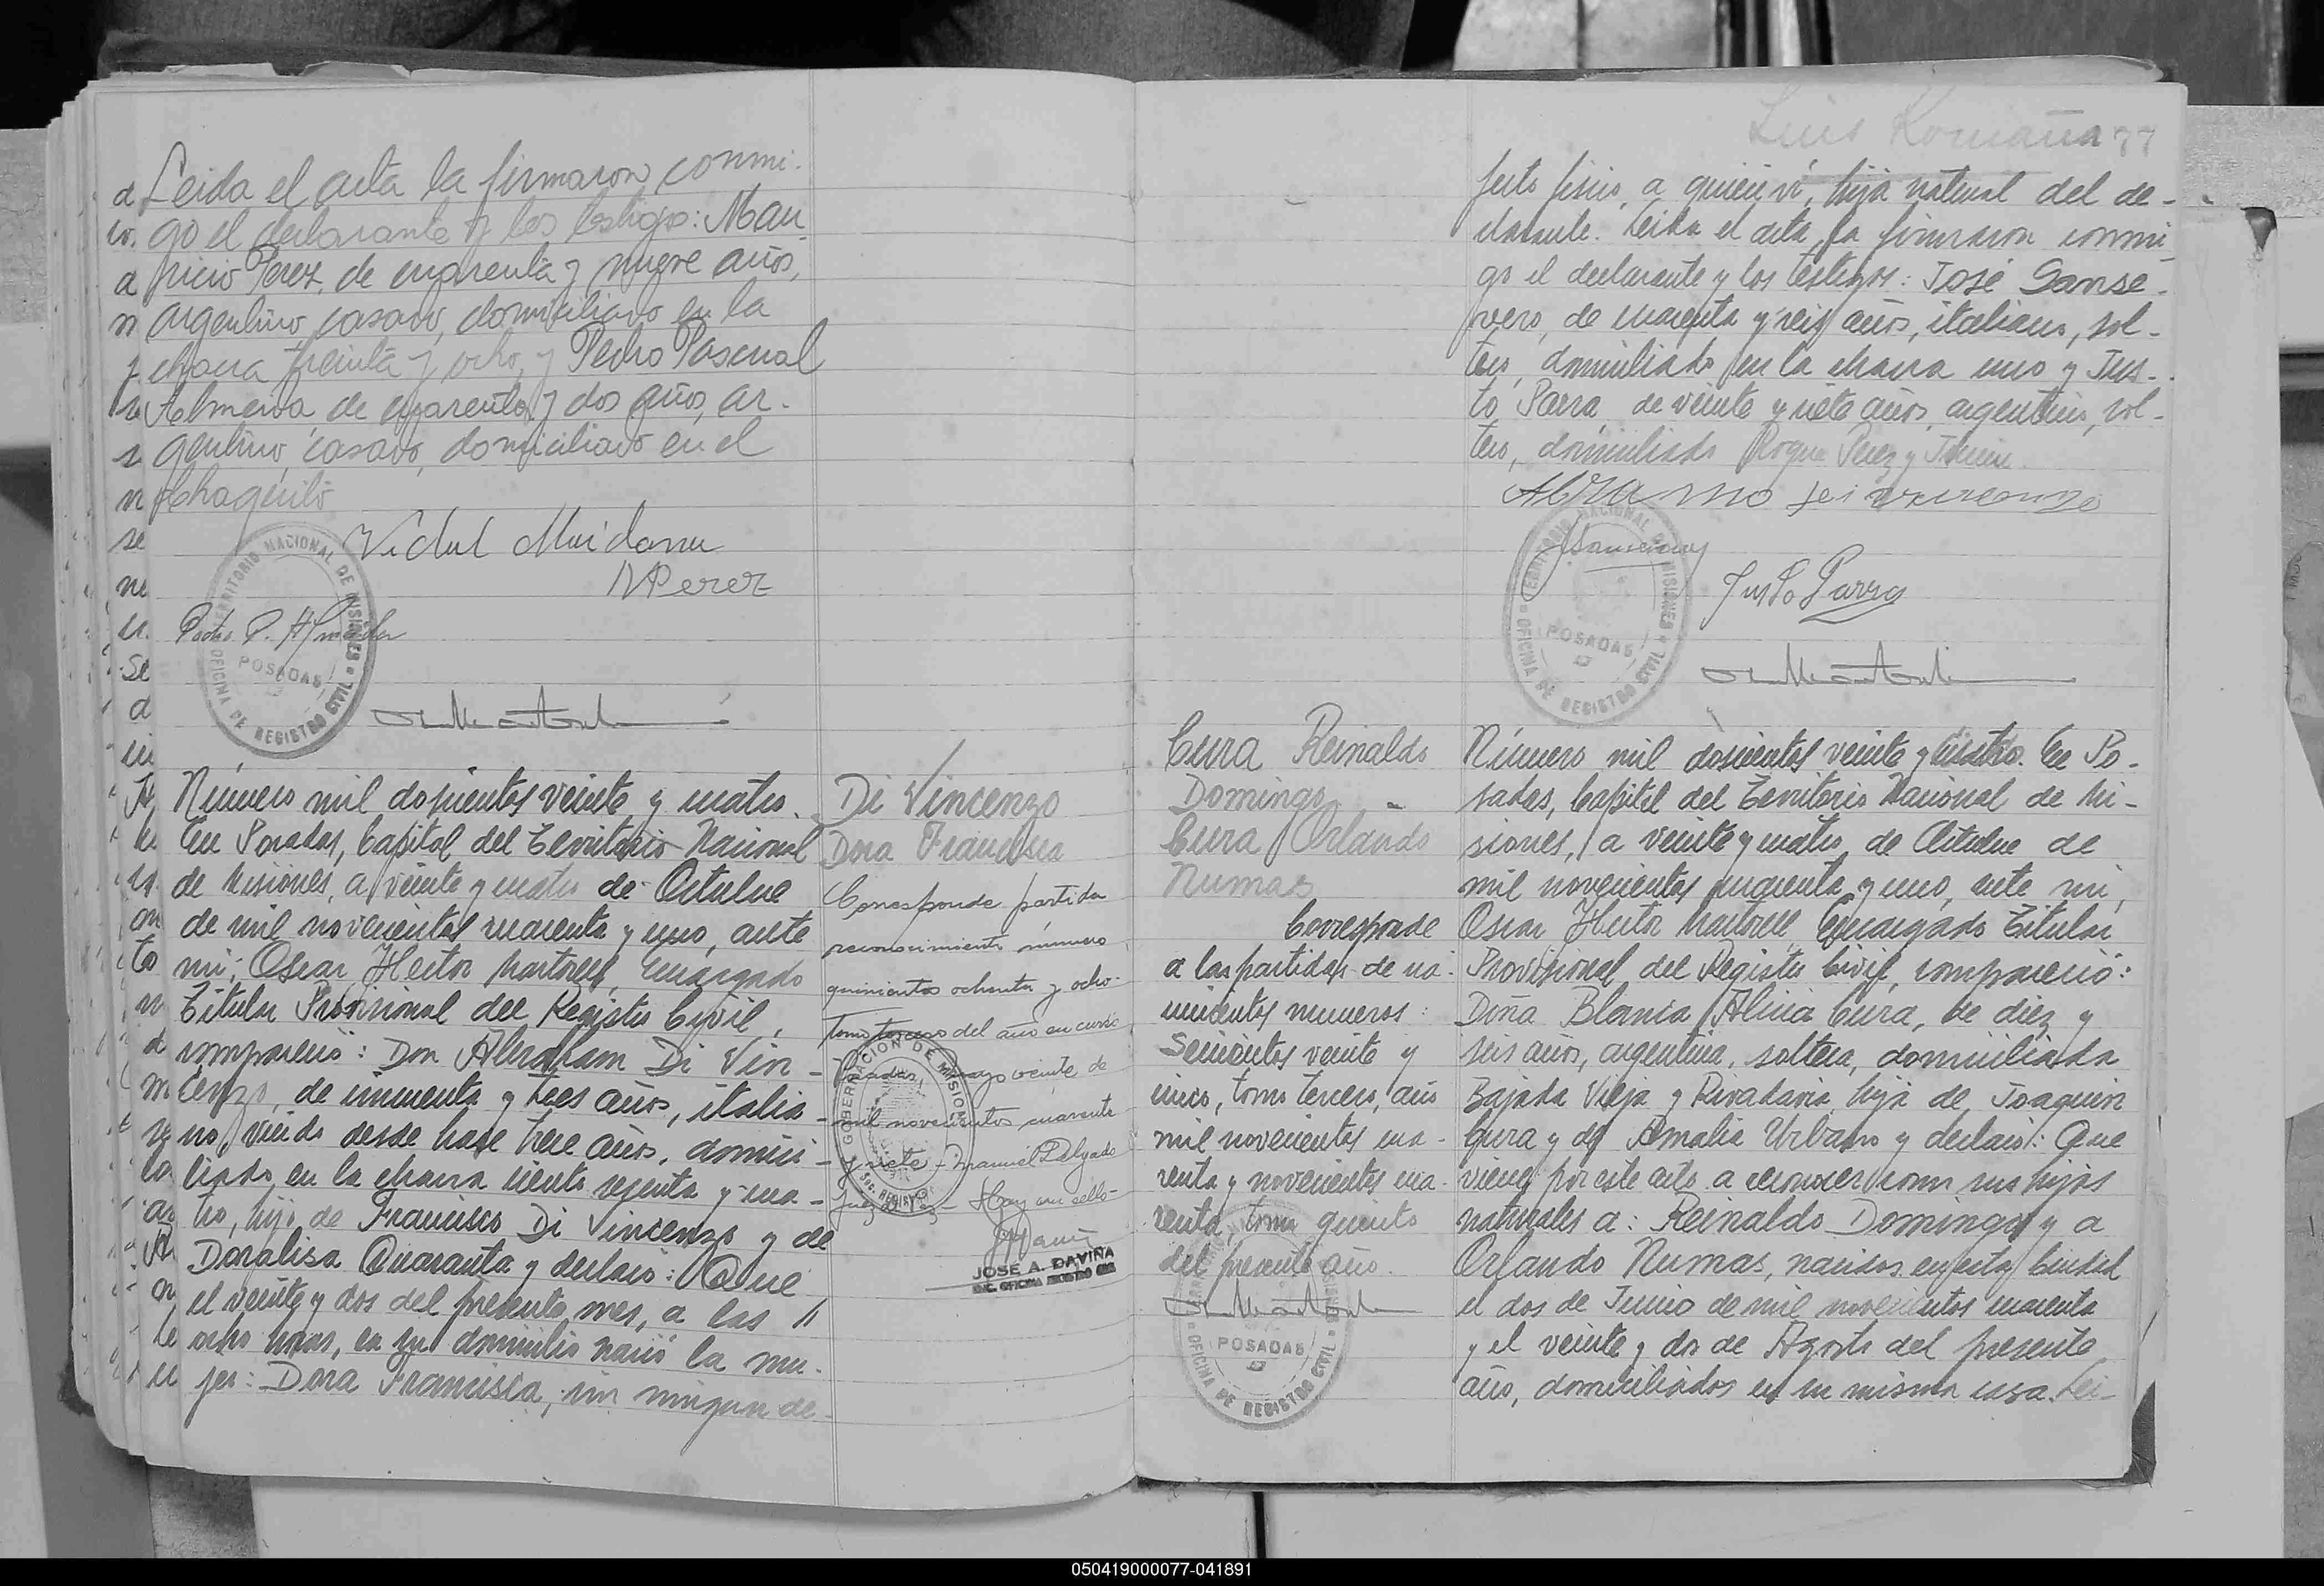 Leida el acta la firmaron conmi-
go el declarante y los testigos: Mau
ricio Perez, de cuarenta y nueve años,
argentino, casado, domiciliado en la
chacra treinta y ocho, y Pedro Pascual
Almeida, de cuarenta y dos años, ar-
gentino, casado, domiciliado en el
Chaquito
Vidal
M Perez
Pedro P. Almeida
TERRITORIO NACIONAL DE MISIONES
POSADAS
OFICINA DE REGISTRO CIVIL
Número mil doscientos veinte y cuatro.
En Posadas, Capital del Territorio Nacional
de Misiones, a veinte y cuatro de Octubre
de mil novecientos cuarenta y uno, ante
mi, Oscar Hector Martorell, Encargado
Titular Provisional del Registro Civil,
compareció: Don Abraham Di Vin-
cenzo, de cincuenta y tres años, italia-
no, viudo desde hace trece años, domici-
liado en la chacra ciento sesenta y cua-
tro, hijo de Francisco Di Vincenzo y de
Doralisa Quaranta y declaró: Que
el veinte y dos del presente mes, a las
ocho horas, en su domicilio nació la mu-
jer: Dora Francisca, sin ningun de-
Di Vincenzo
Dora Francisca
Corresponde partida
reconocimiento número
quinientos ochenta y ocho-
Tomo tercero del año en curso
Posadas, Mayo veinte de
mil novecientos cuarenta
y siete - Manuel Delgado
Juez de Paz - Hay un sello-
GOBERNACION DE MISIONES
JOSE A. DAVIÑA
Luis Romaña 77
fecto fisico, a quien ví, hija natural del de-
clarante. Leida el acta, la firmaron conmi-
go el declarante y los testigos: José Sanse-
vero, de cuarenta y seis años, italiano, sol-
tero, domiciliado en la chacra uno y Jus-
to Parra, de veinte y siete años, argentino, sol-
tero, domiciliado Roque Perez y Junin.
Abramo Di Vincenzo
Justo Parra
TERRITORIO NACIONAL DE MISIONES
POSADAS
OFICINA DE REGISTRO CIVIL
Cura Reinaldo
Domingo -
Cura Orlando
Numas
Corresponde
a las partidas de na-
cimientos numeros:
Seiscientos veinte y
cinco, tomo tercero, año
mil novecientos cua-
renta y novecientos cua-
renta, tomo quinto
del presente año.
POSADAS
OFICINA DE REGISTRO CIVIL
Número mil doscientos veinte y cuatro. En Po-
sadas, Capital del Territorio Nacional de Mi-
siones, a veinte y cuatro de Octubre de
mil novecientos cuarenta y uno, ante mi,
Oscar Hector Martorell Encargado Titular
Provisional del Registro Civil, compareció:
Doña Blanca Alicia Cura, de diez y
seis años, argentina, soltera, domiciliada
Bajada Vieja y Rivadavia, hija de Joaquin
Cura y de Amalia Urbano y declaró: Que
viene por este acto a reconocer como sus hijos
naturales a: Reinaldo Domingo y a
Orlando Numas, nacidos en esta Ciudad
el dos de Junio de mil novecientos cuarenta
y el veinte y dos de Agosto del presente
año, domiciliados en su misma casa. Lei-
050419000077-041891